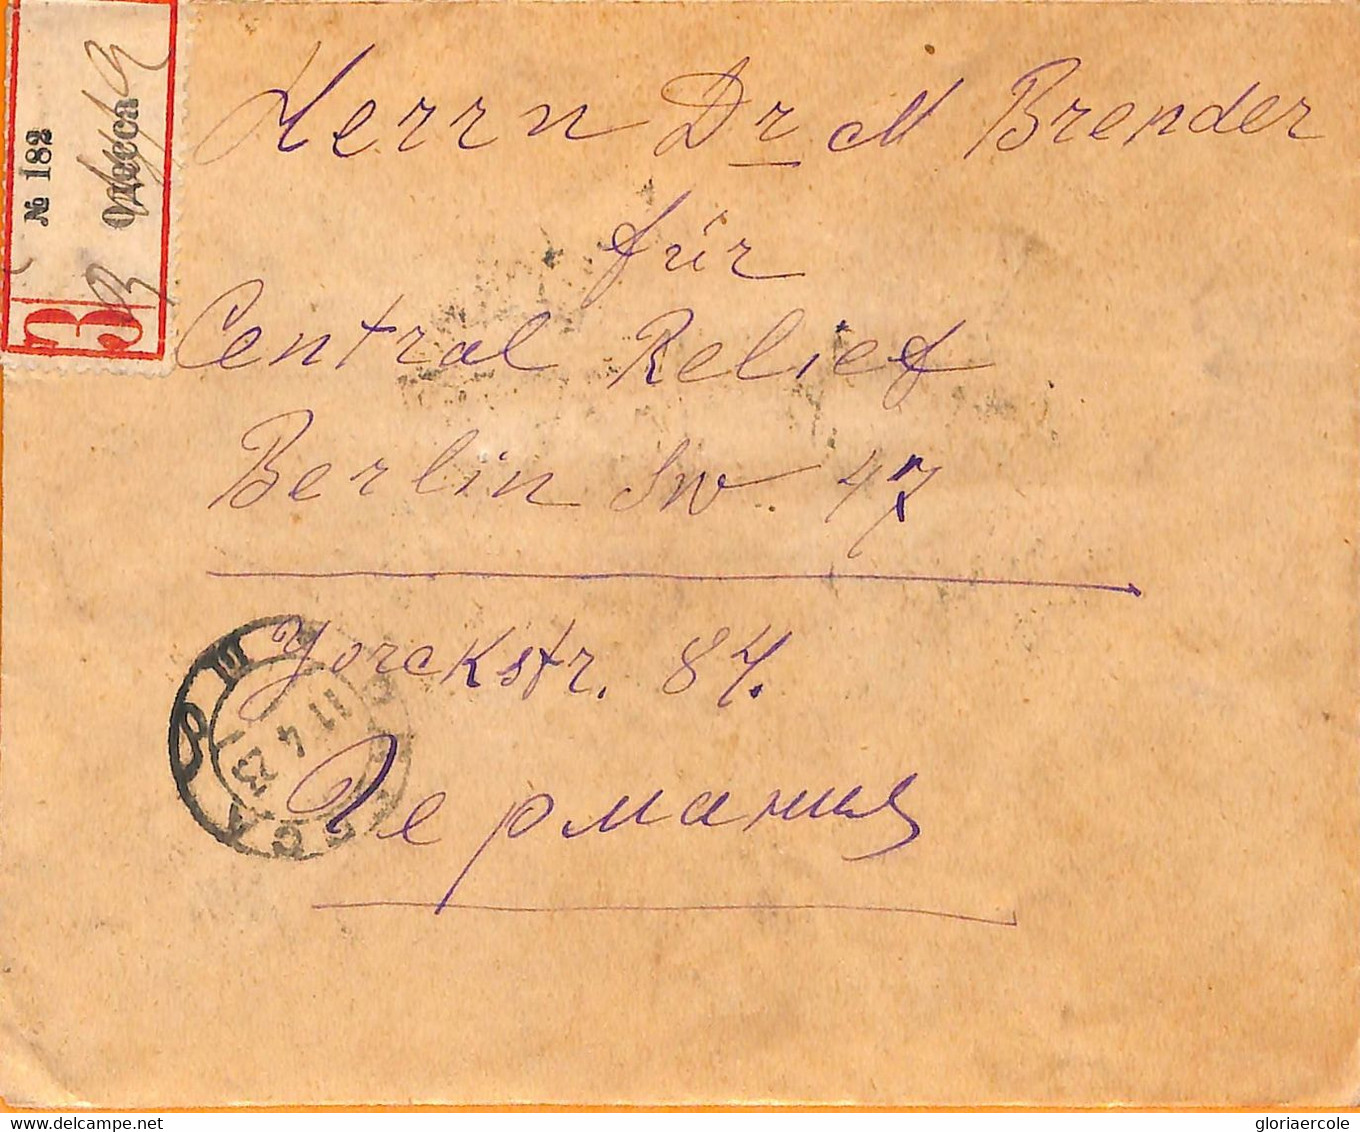 № 182
Одесса
З
Herrn Dr M Brender
für
Central Relief
Berlin SW. 47
Yorckstr. 84.
Германия
11 4 23
gloriaercole